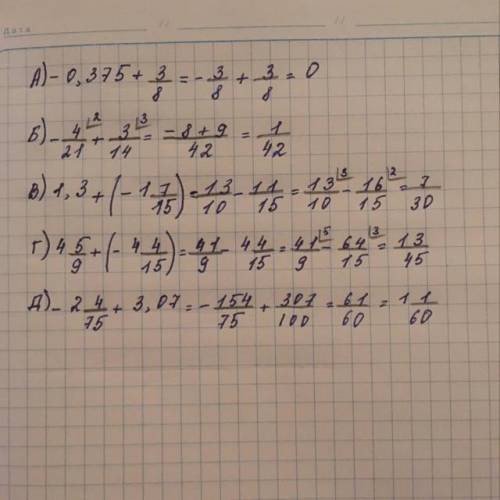 Дата
А) - 0,375 + 3/8 = - 3/8 + 3/8 = 0
Б) - 4/21 ⌊2 + 3/14 ⌊3 = (-8+9)/42 = 1/42
В) 1,3 + (- 1 1/15) = 13/10 - 1 1/15 = 13/10 ⌊3 - 16/15 ⌊2 = 7/30
Г) 4 5/9 + (- 4 4/15) = 41/9 - 4 4/15 = 41/9 ⌊5 - 64/15 ⌊3 = 13/45
Д) - 2 4/75 + 3,07 = - 154/75 + 307/100 = 61/60 = 1 1/60